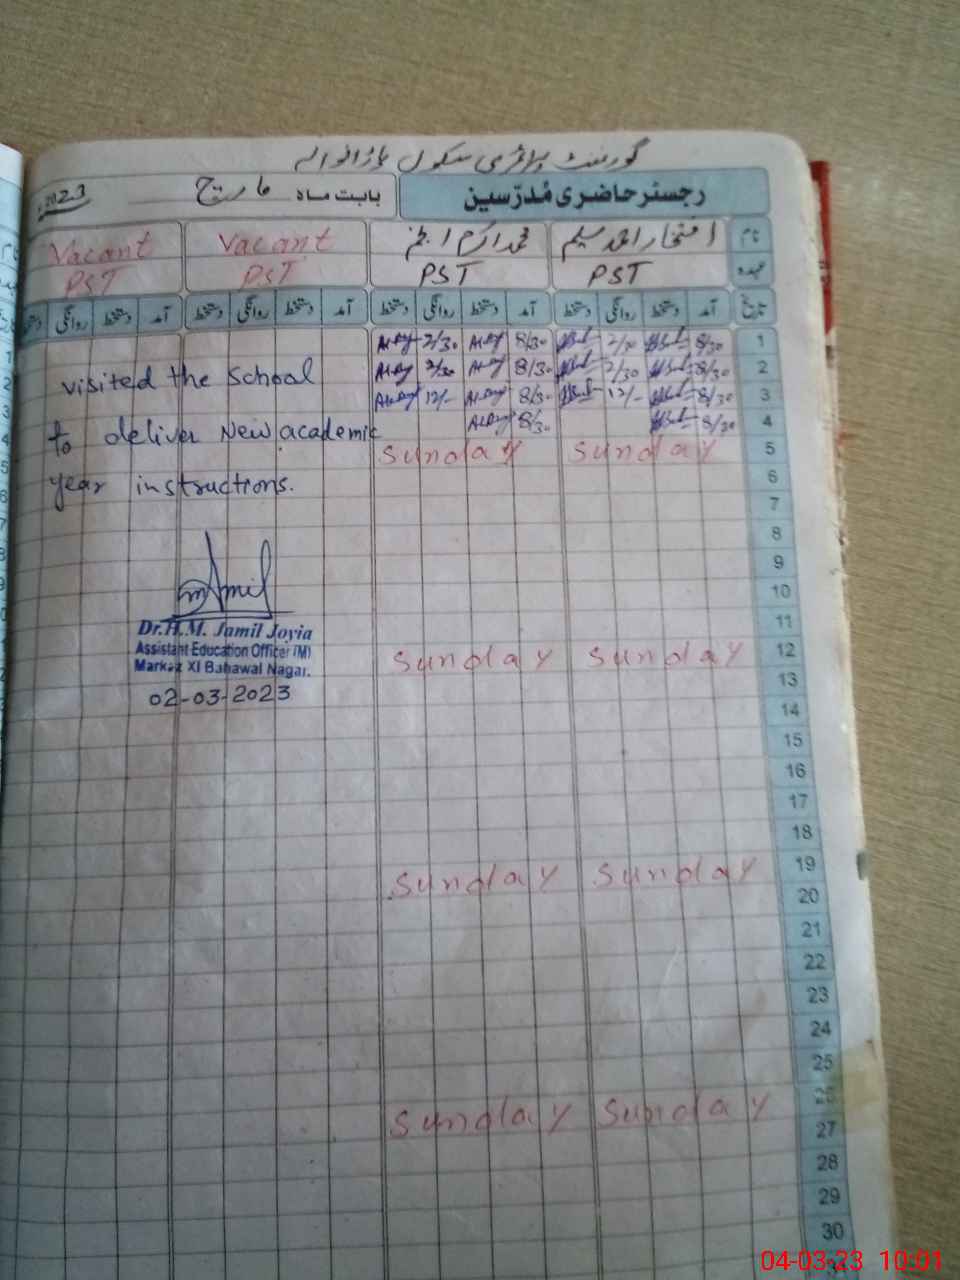 گورنمنٹ پرائمری سکول
رجسٹر حاضری مُدرّسین
بابت ماہ مارچ 2023
نام افتخار احمد سلیم محمد اکرم انجم Vacant Vacant
عہدہ PST PST PST PST
تاریخ آمد دستخط روانگی دستخط آمد دستخط روانگی دستخط آمد دستخط روانگی دستخط آمد دستخط روانگی دستخط
1 8/30 2/30 8/30 2/30
2 8/30 2/30 8/30 2/30
3 8/30 12/- 8/30 12/-
4 8/30 8/30
5 Sunday Sunday
6
7
8
9
10
11
12 Sunday Sunday
13
14
15
16
17
18
19 Sunday Sunday
20
21
22
23
24
25
26 Sunday Sunday
27
28
29
30
visited the School
to deliver New academic
year instructions.
Dr.H.M. Jamil Joyia
Assistant Education Officer (M)
Markaz XI Bahawal Nagar.
02-03-2023
04-03-23 10:01